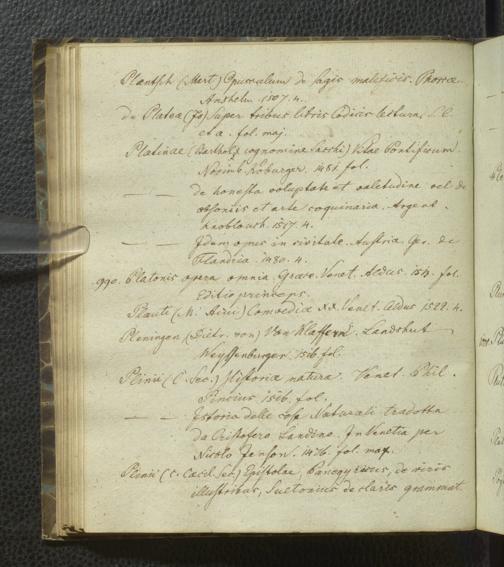 Plantsch (Mart) Opusculum de sagis maleficis. Phorce.
Anshelm. 1507. 4.
de Platea (Jo) super tribus libris Codicis lectura. S. l.
et a. fol. maj.
Platinae (Barthol. cognomine Sacchi) Vitae Pontificum
Norimb. Koburger. 1481. fol.
— — de honesta voluptate et valetudine vel de
obsoniis et arte coquinaria. Argent.
Knoblouch. 1517. 4.
— — Idem opus in civitate Austria. Ger. de
Flandria. 1480. 4.
990. Platonis opera omnia. Graece. Venet. Aldus. 1513. fol.
Editio princeps.
Plauti (M. Accii) Comoediae XX. Venet. Aldus 1522. 4.
Pleningen (Dietr. von) Von Klaffern. Landshut
Weyssenburger. 1516. fol.
Plinii (C. Sec.) Historia natura. Venet. Phil.
Pincius 1516. fol.
— — Istoria delle cose Naturali tradotta
da Cristofero Landino. In Venetia per
Nicolo Jenson. 1476. fol. maj.
Plinii (C. Caecil. Sec) Epistolae, Panegyricus, de viris
illustribus, Suetonius de claris grammat.